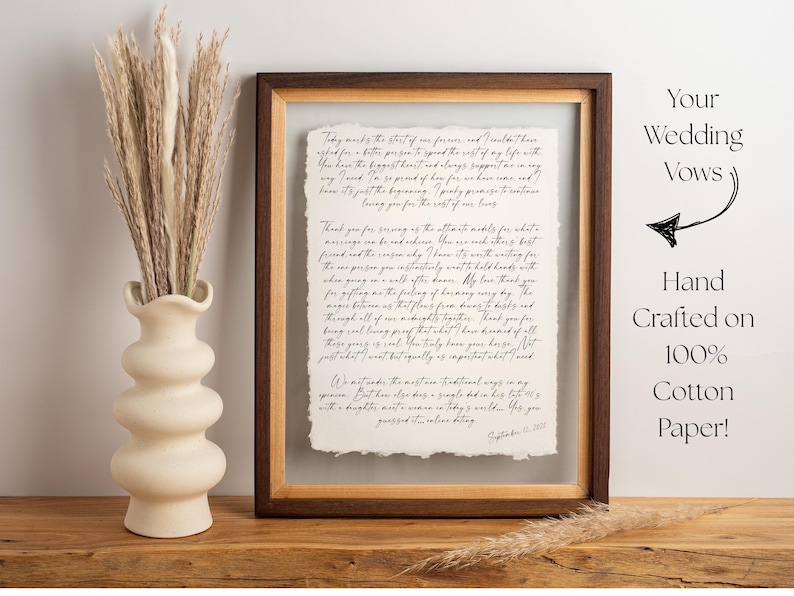 Today marks the start of our forever, and I couldn't have
asked for a better person to spend the rest of my life with.
You have the biggest heart, and always support me in any
way I need. I'm so proud of how far we have come, and I
know it's just the beginning. I pinky promise to continue
loving you for the rest of our lives
Thank you for serving as the ultimate models for what a
marriage can be and achieve. You are each other's best
friend, and the reason why I know it's worth waiting for
the one person you instinctively want to hold hands with
when going on a walk after dinner. My love, thank you
for gifting me the feeling of harmony every day. The
magic between us that flows from dawns to dusks and
through all of our midnights together. Thank you for
being real living proof that what I have dreamed of all
these years is real. You truly know your horse. Not
just what I want but equally as important what I need.
We met under the most non-traditional ways in my
opinion. But how else does a single dad in his late 40's
with a daughter meet a woman in today's world... Yes, you
guessed it... online dating.
September 12, 2020
Your
Wedding
Vows
Hand
Crafted on
100%
Cotton
Paper!